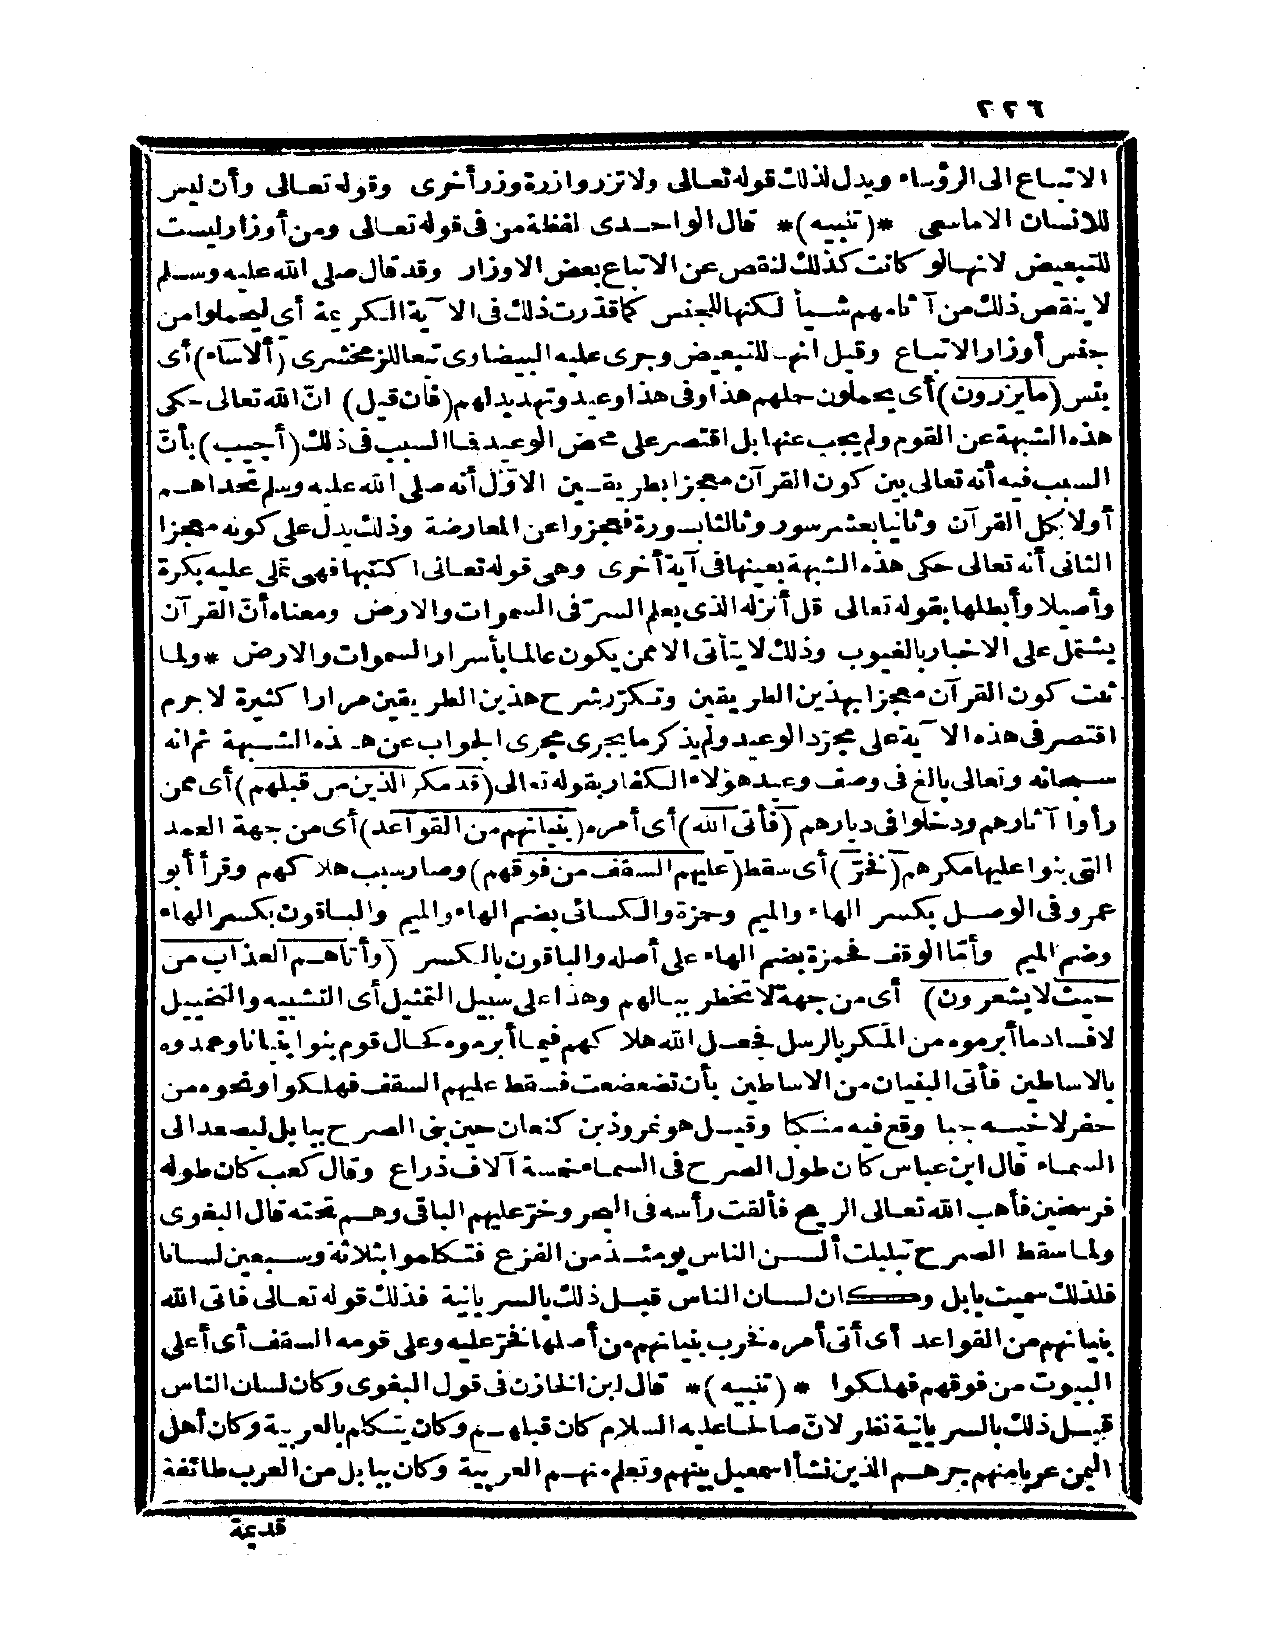 ٢٢٦
الاتباع الى الرؤساء ويدل لذلك قوله تعالى ولا تزر وازرة وزر أخرى وقوله تعالى وأن ليس
للانسان الا ما سعى * (تنبيه) * قال الواحدى لفظة من فى قوله تعالى ومن أوزار ليست
للتبعيض لانها لو كانت كذلك لنقص عن الاتباع بعض الاوزار وقد قال صلى الله عليه وسلم
لا ينقص ذلك من آثامهم شيأ لكنها للجنس كما قدرت ذلك فى الآية الكريمة أى ليحملوا من
جنس أوزار الاتباع وقيل انها للتبعيض وجرى عليه البيضاوى تبعا للزمخشرى (ألاساء) أى
بئس (ما يزرون) أى يحملون حملهم هذا وفى هذا وعيد وتهديد لهم (فان قيل) انّ الله تعالى حكى
هذه الشبهة عن القوم ولم يجب عنها بل اقتصر على محض الوعيد فما السبب فى ذلك (أجيب) بأنّ
السبب فيه أنه تعالى بين كون القرآن معجزا بطريقين الاوّل أنه صلى الله عليه وسلم تحداهم
أولا بكل القرآن وثانيا بعشر سور وثالثا بسورة فعجزوا عن المعارضة وذلك يدل على كونه معجزا
الثانى أنه تعالى حكى هذه الشبهة بعينها فى آية أخرى وهى قوله تعالى اكتتبها فهى تملى عليه بكرة
وأصيلا وأبطلها بقوله تعالى قل أنزله الذى يعلم السرّ فى السموات والارض ومعناه أنّ القرآن
يشتمل على الاخبار بالغيوب وذلك لا يتأتى الا ممن يكون عالما بأسرار السموات والارض * ولما
ثبت كون القرآن معجزا بهذين الطريقين وتكرّر شرح هذين الطريقين مرارا كثيرة لا جرم
اقتصر فى هذه الآية على مجرّد الوعيد ولم يذكر ما يجرى مجرى الجواب عن هذه الشبهة ثم انه
سبحانه وتعالى بالغ فى وصف وعيد هؤلاء الكفار بقوله تعالى (قد مكر الذين من قبلهم) أى ممن
رأوا آثارهم ودخلوا فى ديارهم (فأتى الله) أى أمره (بنيانهم من القواعد) أى من جهة العمد
التى بنوا عليها مكرهم (فخرّ) أى سقط (عليهم السقف من فوقهم) وصار سبب هلاكهم وقرأ أبو
عمرو فى الوصل بكسر الهاء والميم وحمزة والكسائى بضم الهاء والميم والباقون بكسر الهاء
وضم الميم وأمّا الوقف فحمزة بضم الهاء على أصله والباقون بالكسر (وأتاهم العذاب من
حيث لا يشعرون) أى من جهة لا تخطر ببالهم وهذا على سبيل التمثيل أى التشبيه والتخييل
لافساد ما أبرموه من المكر بالرسل فجعل الله هلاكهم فيما أبرموه كحال قوم بنوا بنيانا وعمدوه
بالاساطين فأتى البنيان من الاساطين بأن تضعضعت فسقط عليهم السقف فهلكوا ونحوه من
حفر لاخيه جبا وقع فيه منكبا وقيل هو نمروذ بن كنعان حين بنى الصرح ببابل ليصعد الى
السماء قال ابن عباس كان طول الصرح فى السماء خمسة آلاف ذراع وقال كعب كان طوله
فرسخين فأهب الله تعالى الريح فألقت رأسه فى البحر وخرّ عليهم الباقى وهم تحته قال البغوى
ولما سقط الصرح تبلبلت ألسن الناس يومئذ من الفزع فتكلموا بثلاثة وسبعين لسانا
فلذلك سميت بابل وكان لسان الناس قبل ذلك بالسريانية فذلك قوله تعالى فاتى الله
بنيانهم من القواعد أى أتى أمره فخرب بنيانهم من أصلها فخرّ عليه وعلى قومه السقف أى أعلى
البيوت من فوقهم فهلكوا * (تنبيه) * قال ابن الخازن فى قول البغوى وكان لسان الناس
قبل ذلك بالسريانية نظر لانّ صالحا عليه السلام كان قبلهم وكان يتكلم بالعربية وكان أهل
اليمن عربا منهم جرهم الذين نشأ اسمعيل بينهم وتعلم منهم العربية وكان ببابل من العرب طائفة
قديمة